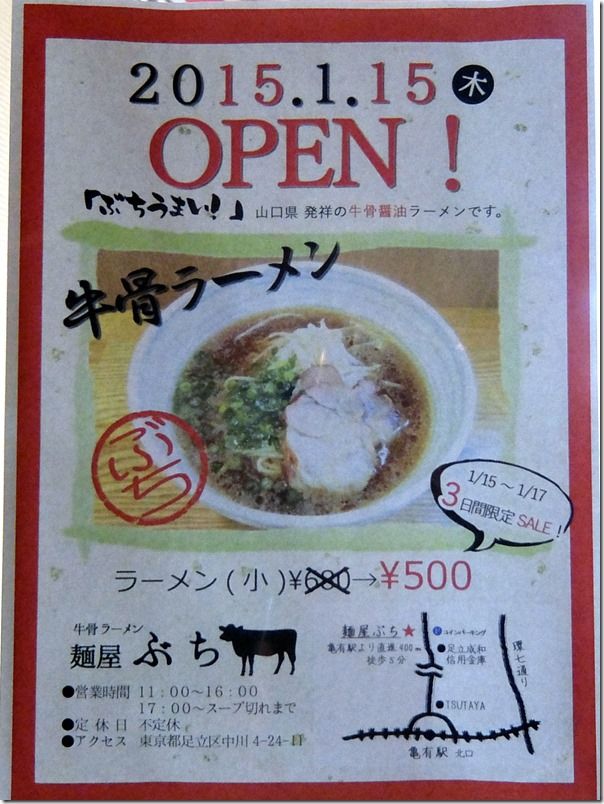 2015.1.15 木
OPEN！
「ぶちうまい！」
山口県 発祥の牛骨醤油ラーメンです。
牛骨ラーメン
ぶち
1/15～1/17
3日間限定 SALE！
ラーメン(小)¥680→¥500
牛骨ラーメン
麺屋 ぶち
●営業時間 11：00～16：00
17：00～スープ切れまで
●定休日 不定休
●アクセス 東京都足立区中川4-24-11
麺屋ぶち★
亀有駅より直進400m
徒歩5分
P コインパーキング
●足立成和
信用金庫
環七通り
●TSUTAYA
亀有駅 北口